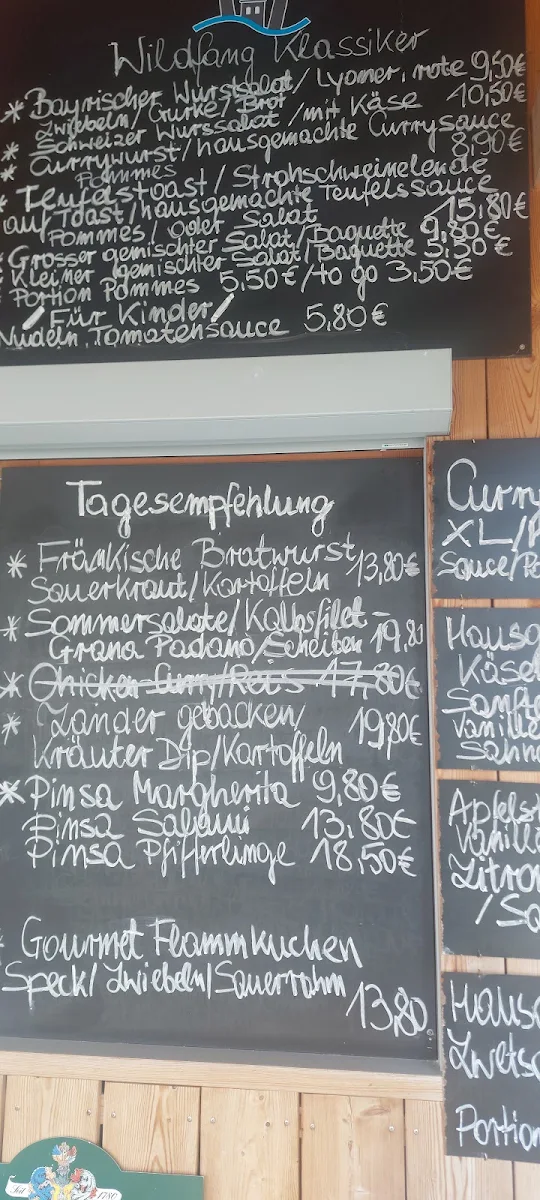 Wildfang Klassiker
* Bayrischer Wurstsalat/Lyoner, rote 9,50€
Zwiebeln/Gurke/Brot
* Schweizer Wurssalat/mit Käse 10,50€
* Currywurst/hausgemachte Currysauce
Pommes 8,90€
* Teufelstoast/Strohschweinelende
auf Toast/hausgemachte Teufelssauce
Pommes/oder Salat 15,80€
* Grosser gemischter Salat/Baguette 9,80€
* Kleiner gemischter Salat/Baguette 5,50€
* Portion Pommes 5,50€/to go 3,50€
/Für Kinder/
Nudeln, Tomatensauce 5,80€
Tagesempfehlung
* Fränkische Bratwurst 13,80€
Sauerkraut/Kartoffeln
* Sommersalate/Kalbsfilet-
Grana Padano/Scheiben 19,8
* Chicken Curry/Reis 17,80€
* Zander gebacken/ 19,80€
Kräuter Dip/Kartoffeln
* Pinsa Margherita 9,80€
Pinsa Salami 13,80€
Pinsa Pfifferlinge 18,50€
* Gourmet Flammkuchen
Speck/Zwiebeln/Sauerrahm
13,80
Curry
XL/P
Sauce/Po
Hausg
Käse
Sanf
Vanille
Sahn
Apfels
Vanill
Zitro
/Sa
Hausg
Zwets
Portion
Seit 1780